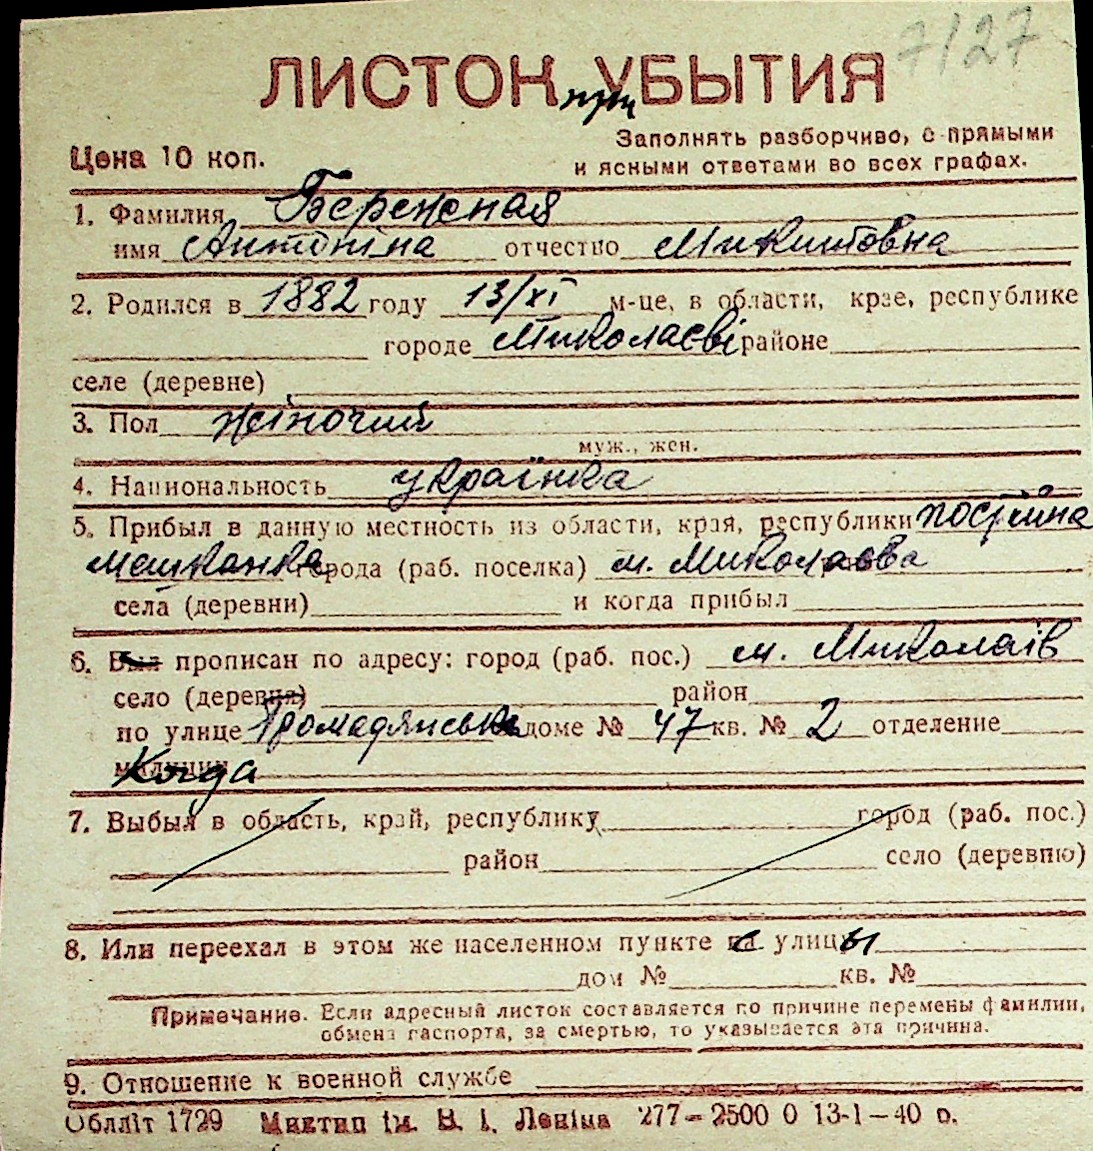 7/27
ЛИСТОК при УБЫТИЯ
Заполнять разборчиво, с прямыми
Цена 10 коп.
и ясными ответами во всех графах.
1. Фамилия Бережная
имя Антоніна отчество Микитовна
2. Родился в 1882 году 13/XI м-це, в области, крае, республике
городе Миколаєві районе
селе (деревне)
3. Пол жіночий
муж., жен.
4. Национальность українка
5. Прибыл в данную местность из области, края, республики постійна
мешканка города (раб. поселка) м. Миколаєва
села (деревни) и когда прибыл
6. Был прописан по адресу: город (раб. пос.) м. Миколаїв
село (деревня) район
по улице Громадянська доме № 47 кв. № 2 отделение
милиции Когда
7. Выбыл в область, край, республику город (раб. пос.)
район село (деревню)
8. Или переехал в этом же населенном пункте с улицы
дом № кв. №
Примечание. Если адресный листок составляется по причине перемены фамилии,
обмена паспорта, за смертью, то указывается эта причина.
9. Отношение к военной службе
Обллiт 1729 Миктип iм. В. I. Ленiна 277–2500 0 13-1–40 р.